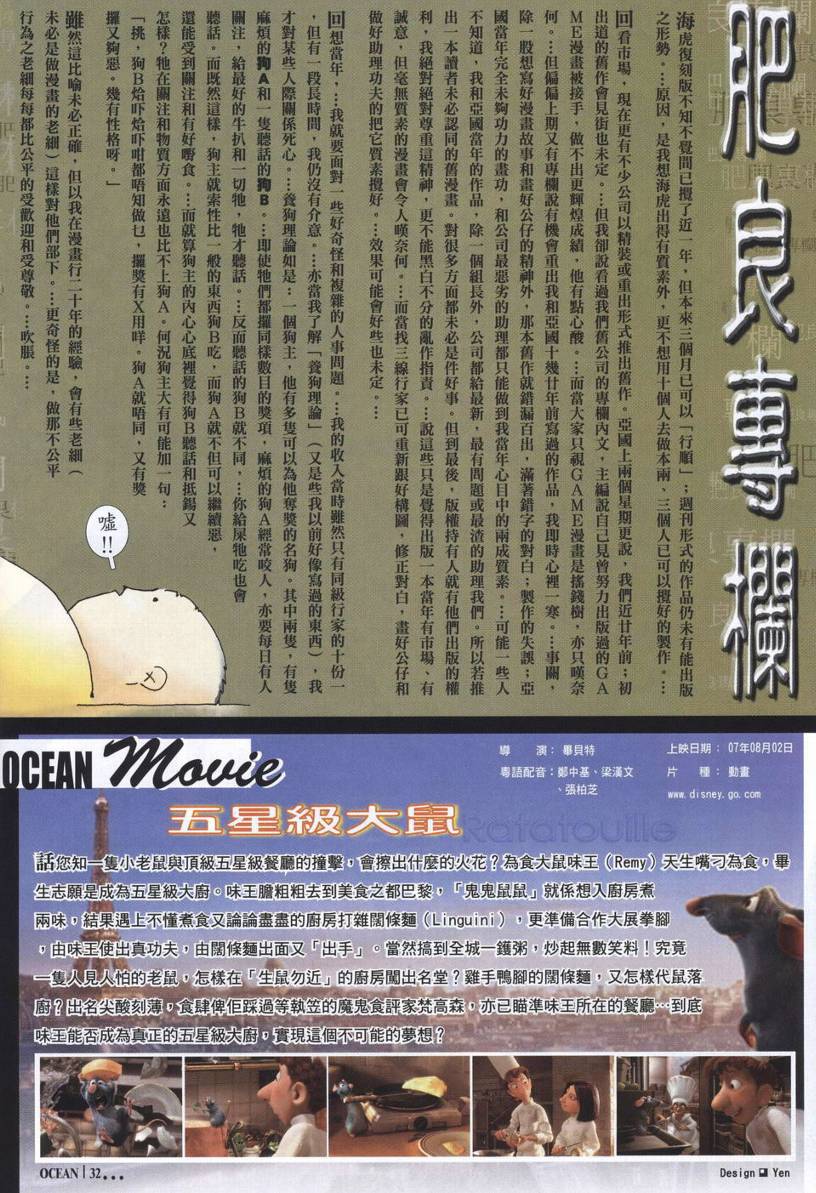 肥良專欄
海虎復刻版不知不覺間已攪了近一年，但本來三個月已可以「行順」；週刊形式的作品仍未有能出版
之形勢。…原因，是我想海虎出得有質素外，更不想用十個人去做本兩、三個人已可以攪好的製作。…
回看市場，現在更有不少公司以精裝或重出形式推出舊作。亞國上兩個星期更說，我們近廿年前；初
出道的舊作會見街也未定。…但我卻說看過我們舊公司的專欄內文，主編說自己見曾努力出版過的GA
ME漫畫被接手，做不出更輝煌成績，他有點心酸。…而當大家只視GAME漫畫是搖錢樹，亦只嘆奈
何。…但偏偏上期又有專欄說有機會重出我和亞國十幾廿年前寫過的作品，我即時心裡一寒。…事關，
除一股想寫好漫畫故事和畫好公仔的精神外，那本舊作就錯漏百出，滿著錯字的對白；製作的失誤；亞
國當年完全未夠功力的畫功，和公司最惡劣的助理都只能做到我當年心目中的兩成質素。…可能一些人
不知道，我和亞國當年的作品，除一個組長外，公司都給最新，最有問題或最渣的助理我們。所以若推
出一本讀者未必認同的舊漫畫。對很多方面都未必是件好事。但到最後，版權持有人就有他們出版的權
利，我絕對絕對尊重這精神，更不能黑白不分的亂作指責。…說這些只是覺得出版一本當年有市場、有
誠意，但毫無質素的漫畫會令人嘆奈何。…而當找三線行家已可重新跟好構圖，修正對白，畫好公仔和
做好助理功夫的把它質素攪好。…效果可能會好些也未定。…
回想當年，…我就要面對一些好奇怪和複雜的人事問題。…我的收入當時雖然只有同級行家的十份一
，但有一段長時間，我仍沒有介意。…亦當我了解「養狗理論」（又是些我以前好像寫過的東西），我
才對某些人際關係死心。…養狗理論如是：一個狗主，他有多隻可以為他奪獎的名狗。其中兩隻，有隻
麻煩的狗A和一隻聽話的狗B。…即使牠們都攞同樣數目的獎項，麻煩的狗A經常咬人，亦要每日有人
關注，給最好的牛扒和一切牠，牠才聽話。…反而聽話的狗B就不同，…你給屎牠吃也會
聽話。而既然這樣，狗主就索性比一般的東西狗B吃，而狗A就不但可以繼續惡，
還能受到關注和有好嘢食。…而就算狗主的內心心底裡覺得狗B聽話和抵錫又
怎樣？牠在關注和物質方面永遠也比不上狗A。何況狗主大有可能加一句：
「挑，狗B烚吓烚吓咁都唔知做乜，攞獎有X用咩。狗A就唔同，又有獎
攞又夠惡。幾有性格呀。」
雖然這比喻未必正確，但以我在漫畫行二十年的經驗，會有些老細（
未必是做漫畫的老細）這樣對他們部下。…更奇怪的是，做那不公平
行為之老細每每都比公平的受歡迎和受尊敬。…吹脹。…
噓!!
OCEAN Movie
導　演：畢貝特
粵語配音：鄭中基、梁漢文
、張柏芝
上映日期：07年08月02日
片　種：動畫
www.disney.go.com
五星級大鼠
Ratatouille
話您知一隻小老鼠與頂級五星級餐廳的撞擊，會擦出什麼的火花？為食大鼠味王（Remy）天生嘴刁為食，畢
生志願是成為五星級大廚。味王膽粗粗去到美食之都巴黎，「鬼鬼鼠鼠」就係想入廚房煮
兩味，結果遇上不懂煮食又論論盡盡的廚房打雜闊條麵（Linguini），更準備合作大展拳腳
，由味王使出真功夫，由闊條麵出面又「出手」。當然搞到全城一鑊粥，炒起無數笑料！究竟
一隻人見人怕的老鼠，怎樣在「生鼠勿近」的廚房闖出名堂？雞手鴨腳的闊條麵，又怎樣代鼠落
廚？出名尖酸刻薄，食肆俾佢踩過等執笠的魔鬼食評家梵高森，亦已瞄準味王所在的餐廳…到底
味王能否成為真正的五星級大廚，實現這個不可能的夢想？
OCEAN | 32...
Design Yen